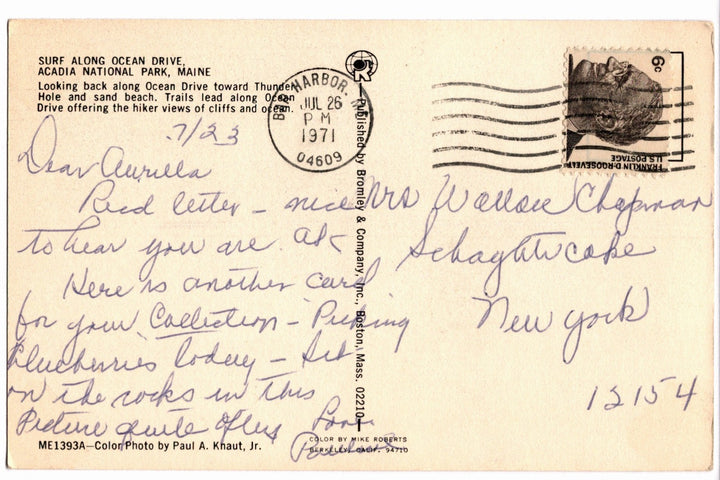 SURF ALONG OCEAN DRIVE,
ACADIA NATIONAL PARK, MAINE
Looking back along Ocean Drive toward Thunder
Hole and sand beach. Trails lead along Ocean
Drive offering the hiker views of cliffs and ocean.
7/23
Dear Aurilla
Recd letter - nice
to hear you are ok
Here is another card
for your Collection - Picking
blueberries today - Sit
on the rocks in this
Picture quite often
Love
ME1393A—Color Photo by Paul A. Knaut, Jr.
Published by Bromley & Company, Inc., Boston, Mass. 02210
COLOR BY MIKE ROBERTS
BERKELEY, CALIF. 94710
BAR HARBOR, ME
JUL 26
P M
1971
04609
6c
FRANKLIN D. ROOSEVELT
U.S. POSTAGE
Mrs Wallace Chapman
Schaghticoke
New York
12154